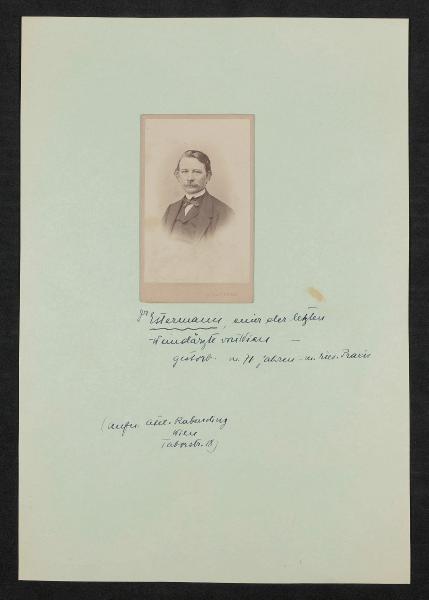 Dr Estermann, einer der letzten
Wundärzte von Wien —
gestorb. m. 71 Jahren - m. ries. Praxis
(Aufn. Atel. Rabending
Wien
Taborstr. 18)